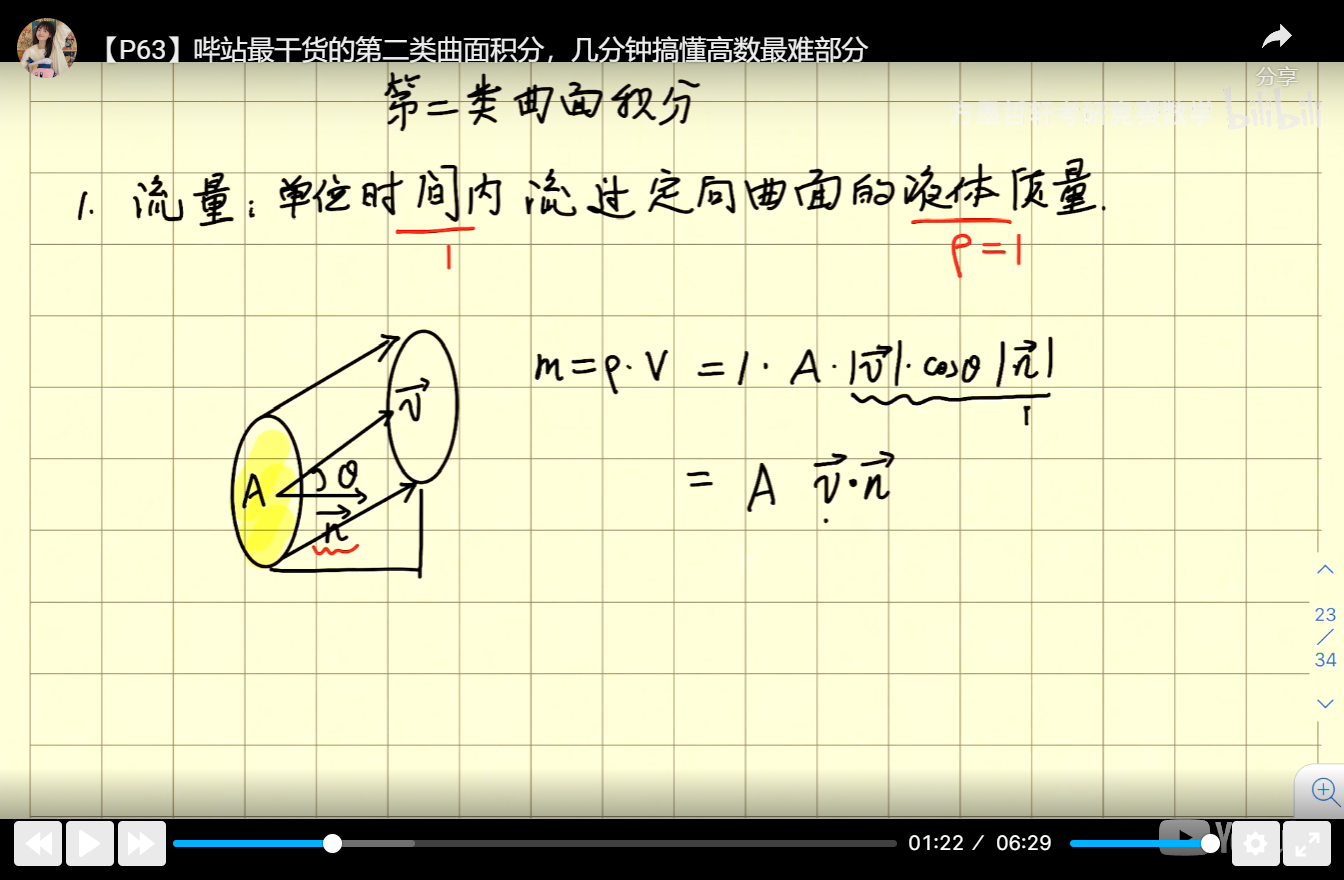 【P63】哔站最干货的第二类曲面积分，几分钟搞懂高数最难部分
分享
bilibili
第二类曲面积分
1. 流量：单位时间内流过定向曲面的液体质量.
1
ρ=1
m=ρ·V =1·A·|v⃗|·cosθ|n⃗|
1
= A v⃗·n⃗
v⃗
A
θ
n⃗
23
/
34
01:22 / 06:29